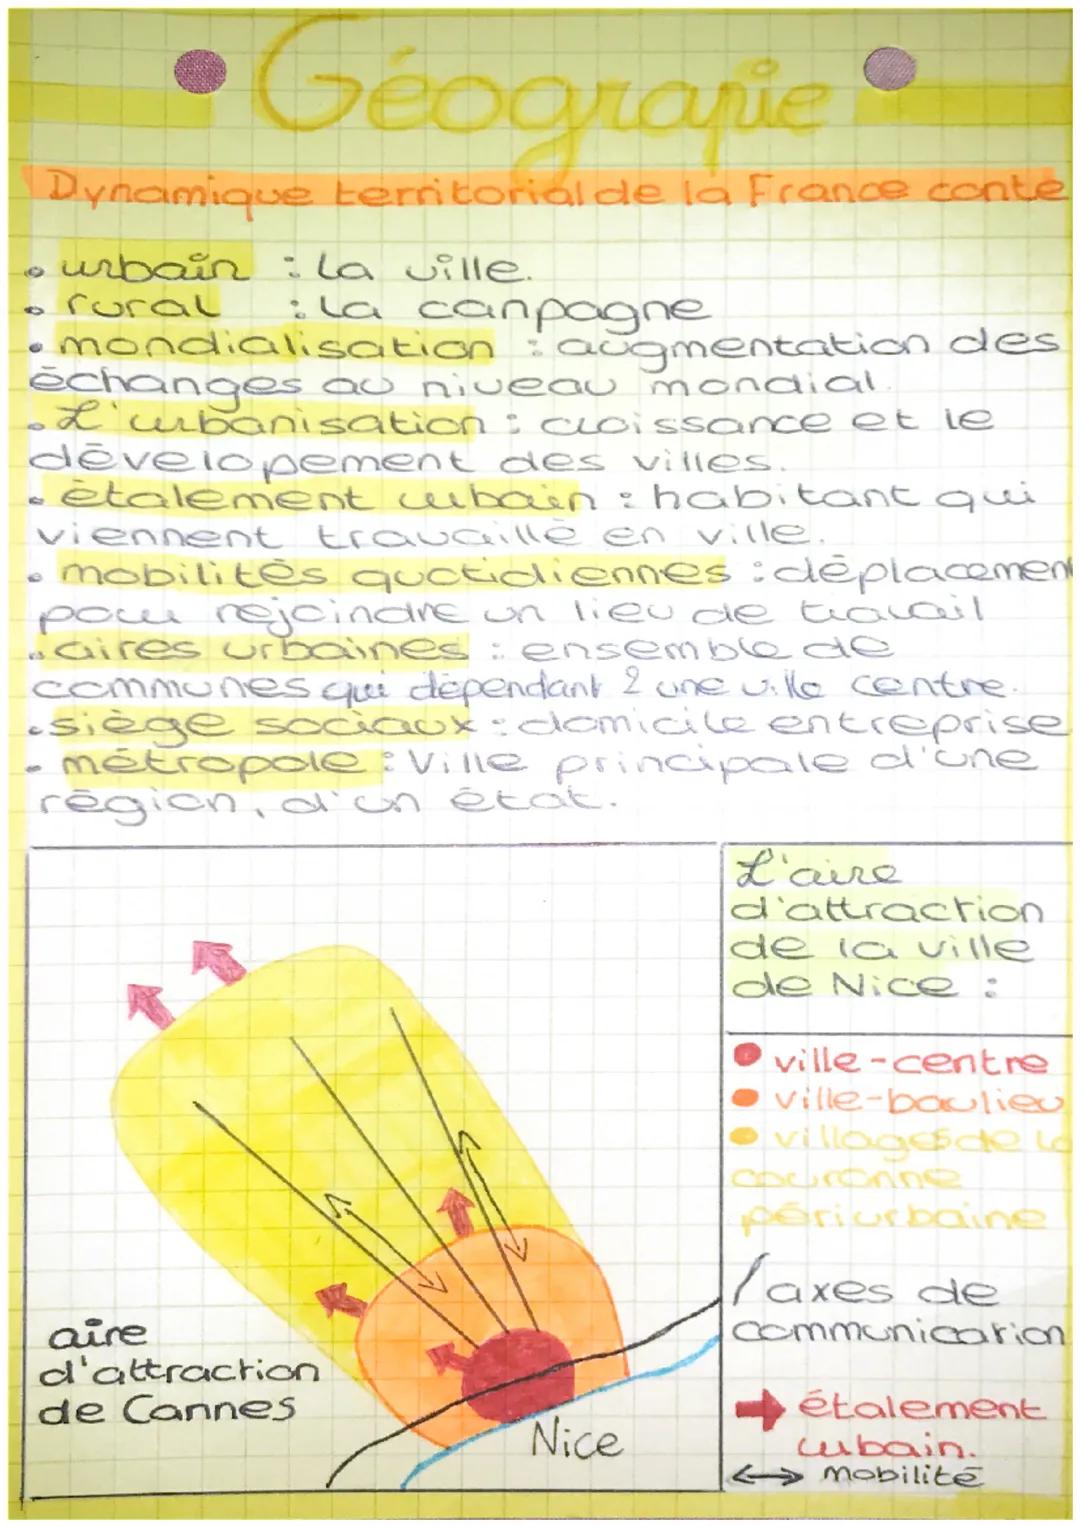 Géograpie
Dynamique territorial de la France conte
• urbain : la ville.
• rural : la canpagne
• mondialisation : augmentation des
échanges au niveau mondial.
• L'urbanisation : croissance et le
dévelopement des villes.
• étalement urbain : habitant qui
viennent travaillé en ville.
• mobilités quotidiennes : déplacement
pour rejoindre un lieu de travail
• aires urbaines : ensemble de
communes qui dépendant 2 une ville centre.
• siège sociaux : domicile entreprise
• métropole : Ville principale d'une
région, d'un état.
L'aire
d'attraction
de la ville
de Nice :
ville-centre
ville-baulieu
villages de la
couronne
périurbaine
axes de
communication
étalement
urbain.
mobilité
aire
d'attraction
de Cannes
Nice